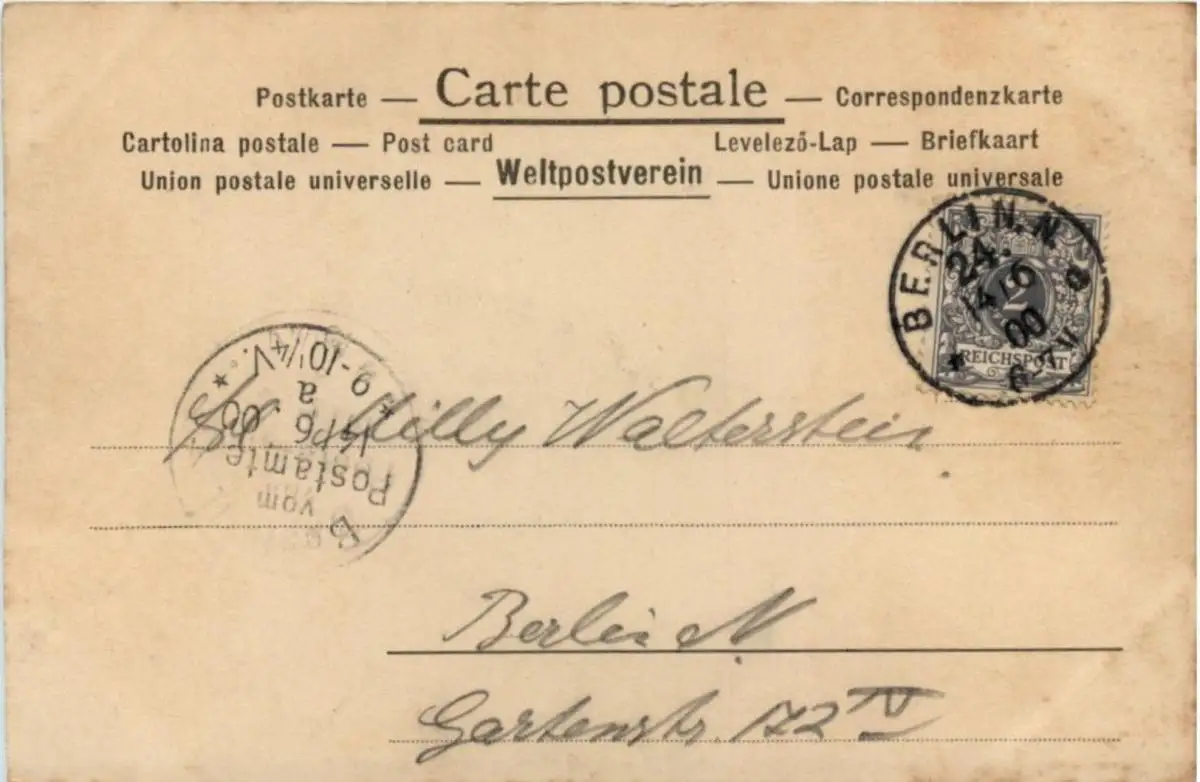 Postkarte — Carte postale — Correspondenzkarte
Cartolina postale — Post card Levelező-Lap — Briefkaart
Union postale universelle — Weltpostverein — Unione postale universale
BERLIN. N. a
24.
14/6
00
6-7V.
*
2
REICHSPOST
Milly Walterstein.
Berlin N.
Gartenstr. 172 IV
B
vom
Postamte
a
* 9-10¼V. *